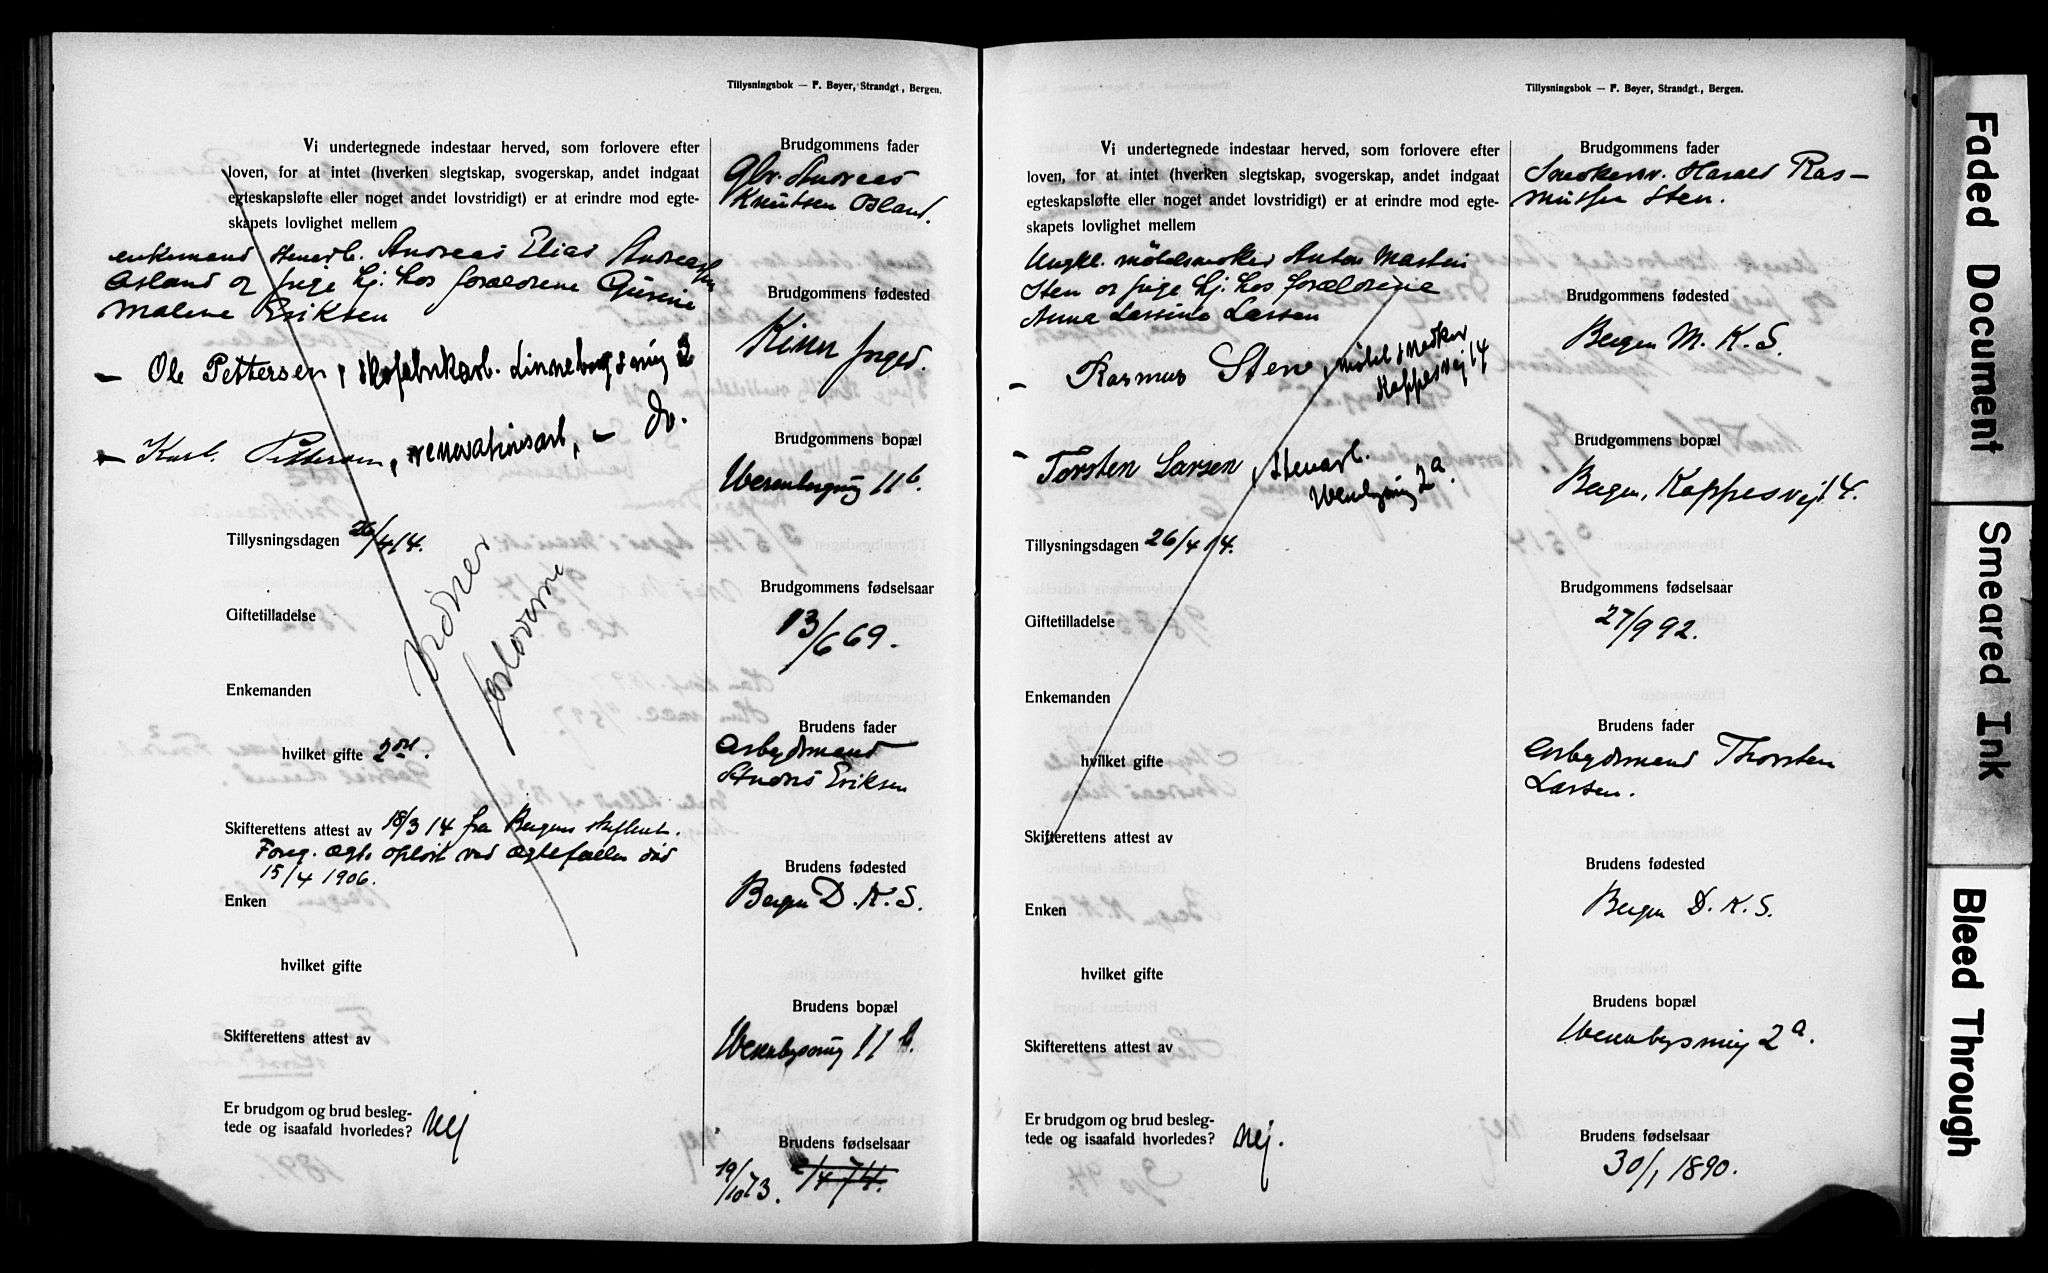 Tillysningsbok — F. Bøyer, Strandgt, Bergen.
Vi undertegnede indestaar herved, som forlovere efter
loven, for at intet (hverken slegtskap, svogerskap, andet indgaat
egteskapsløfte eller noget andet lovstridigt) er at erindre mod egte-
skapets lovlighet mellem
enkemand stenarb. Andreas Elias Andreassen
Osland og pige hj. hos forældrene Gurine
Malene Eriksen
— Ole Pettersen, skofabrikarb.
— Karl Pettersen, renovationsarb, — do.
Tillysningsdagen 26/4 14.
Giftetilladelse
Enkemanden
hvilket gifte 2det.
Skifterettens attest av 18/3 14 fra Bergens skifteret.
Foreg. egt. opløst ved ægtefællens død
15/4 1906.
Enken
hvilket gifte
Skifterettens attest av
Er brudgom og brud besleg-
tede og isaafald hvorledes? Nej
forloverne
Brudgommens fader
Gbr. Andreas
Knutsen Osland.
Brudgommens fødested
Kinn prged.
Brudgommens bopæl
11b.
Brudgommens fødselsaar
13/6 69.
Brudens fader
Arbejdsmand
Eriksen
Brudens fødested
Bergen D. K. S.
Brudens bopæl
11b.
Brudens fødselsaar
19/10 73. 2/4 74.
Tillysningsbok — F. Bøyer, Strandgt., Bergen.
Vi undertegnede indestaar herved, som forlovere efter
loven, for at intet (hverken slegtskap, svogerskap, andet indgaat
egteskapsløfte eller noget andet lovstridigt) er at erindre mod egte-
skapets lovlighet mellem
Ungkl. möbelsnekker Anton Martin
Sten og pige hj. hos forældrene
Anna Larsine Larsen
— Rasmus Sten, möbelsnedker
Kappesvej 14
— Torsten Larsen, stenarb.
2a.
Tillysningsdagen 26/4 14.
Giftetilladelse
Enkemanden
hvilket gifte
Skifterettens attest av
Enken
hvilket gifte
Skifterettens attest av
Er brudgom og brud besleg-
tede og isaafald hvorledes? Nej.
Brudgommens fader
Harald Ras-
mussen Sten.
Brudgommens fødested
Bergen M. K. S.
Brudgommens bopæl
Bergen, Kappesvej 14.
Brudgommens fødselsaar
27/9 92.
Brudens fader
Arbejdsmand Thorsten
Larsen.
Brudens fødested
Bergen D. K. S.
Brudens bopæl
2a.
Brudens fødselsaar
30/1 1890.
Faded Document
Smeared Ink
Bleed Through